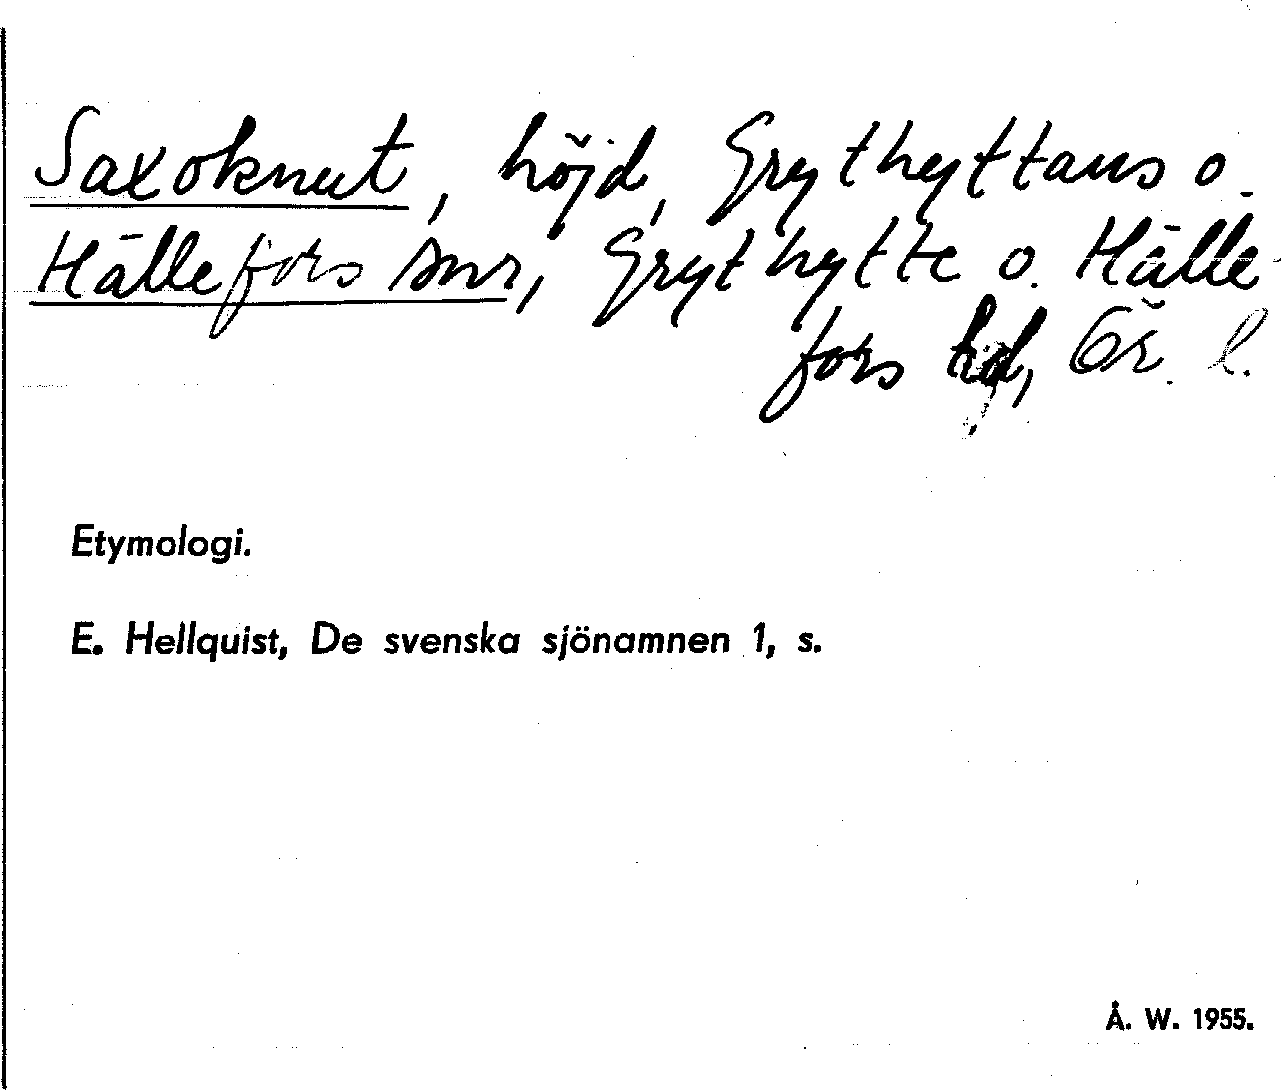 Saxoknut, höjd, Grythyttans o.
Hällefors snr, Grythytte o. Hälle-
fors hd, Ör. l.
Etymologi.
E. Hellquist, De svenska sjönamnen 1, s.
Å. W. 1955.